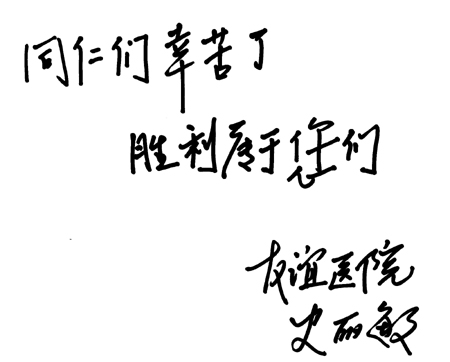 同仁们辛苦了
胜利属于您们
友谊医院
史丽敏